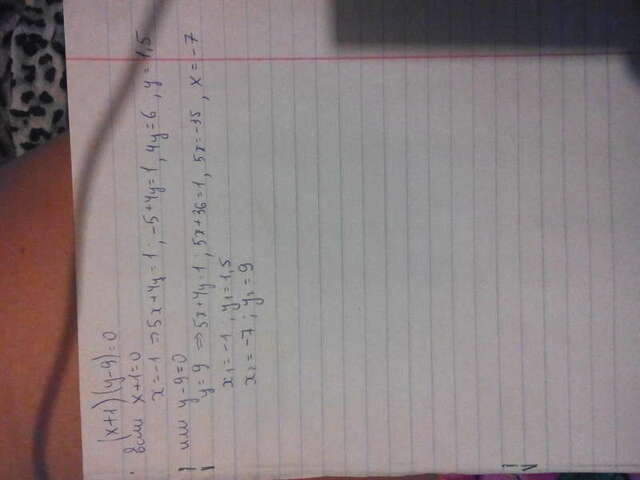 (x+1)(y-9)=0
если x+1=0
x=-1 ⇒ 5x+4y=1; -5+4y=1, 4y=6, y=1,5
или y-9=0
y=9 ⇒ 5x+4y=1; 5x+36=1, 5x=-35, x=-7
x₁=-1, y₁=1,5
x₂=-7; y₂=9